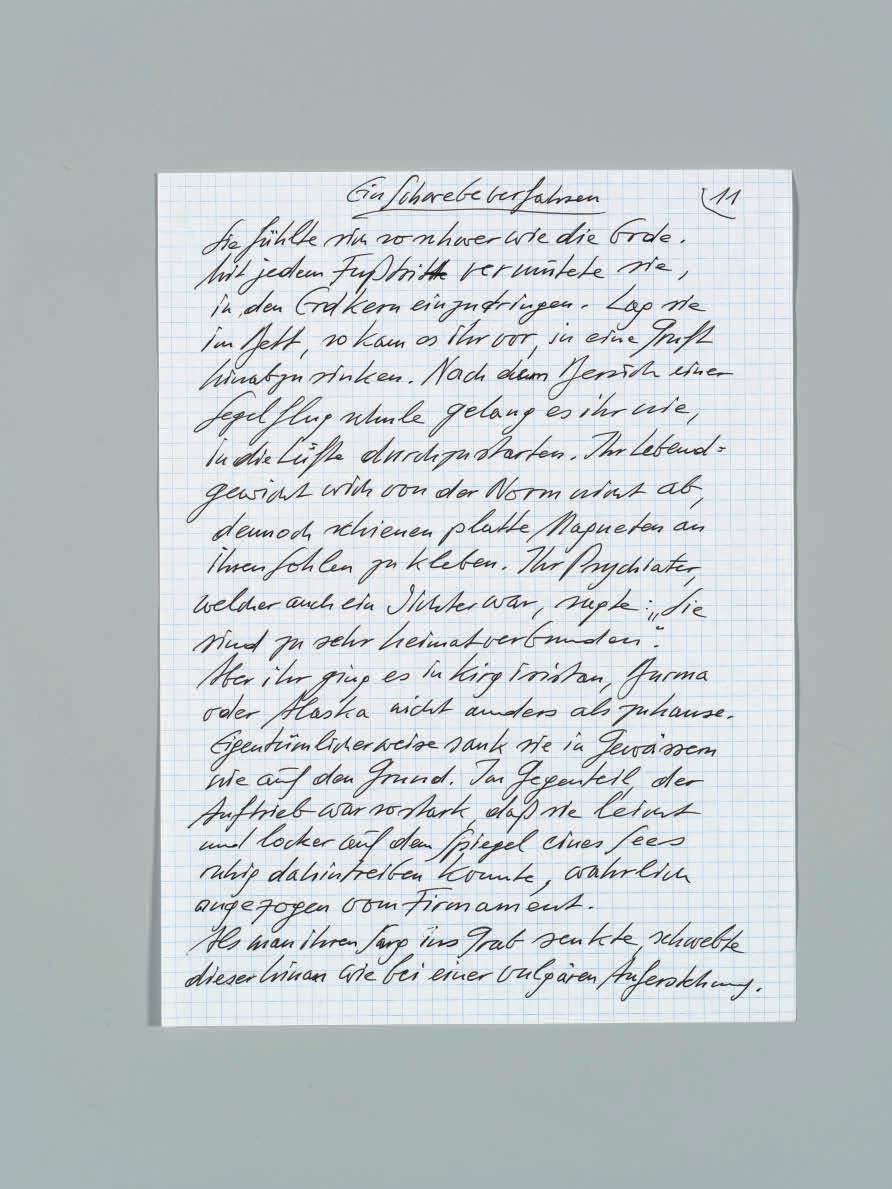 Ein Schwebeverfahren
11
Sie fühlte sich so schwer wie die Erde.
Mit jedem Fußtritt vermutete sie,
in den Erdkern einzudringen. Lag sie
im Bett, so kam es ihr vor, in eine Gruft
hinabzusinken. Nach dem Besuch einer
Segelflugschule gelang es ihr nie,
in die Lüfte durchzustarten. Ihr Lebend=
gewicht wich von der Norm nicht ab,
dennoch schienen platte Magneten an
ihren Sohlen zu kleben. Ihr Psychiater,
welcher auch ein Dichter war, sagte: „Sie
sind zu sehr heimatverbunden".
Aber ihr ging es in Kirgisistan, Burma
oder Alaska nicht anders als zuhause.
Eigentümlicherweise sank sie in Gewässern
nie auf den Grund. Im Gegenteil, der
Auftrieb war so stark, daß sie leicht
und locker auf dem Spiegel eines Sees
ruhig dahintreiben konnte, wahrlich
angezogen vom Firmament.
Als man ihren Sarg ins Grab senkte, schwebte
dieser hinan wie bei einer vulgären Auferstehung.